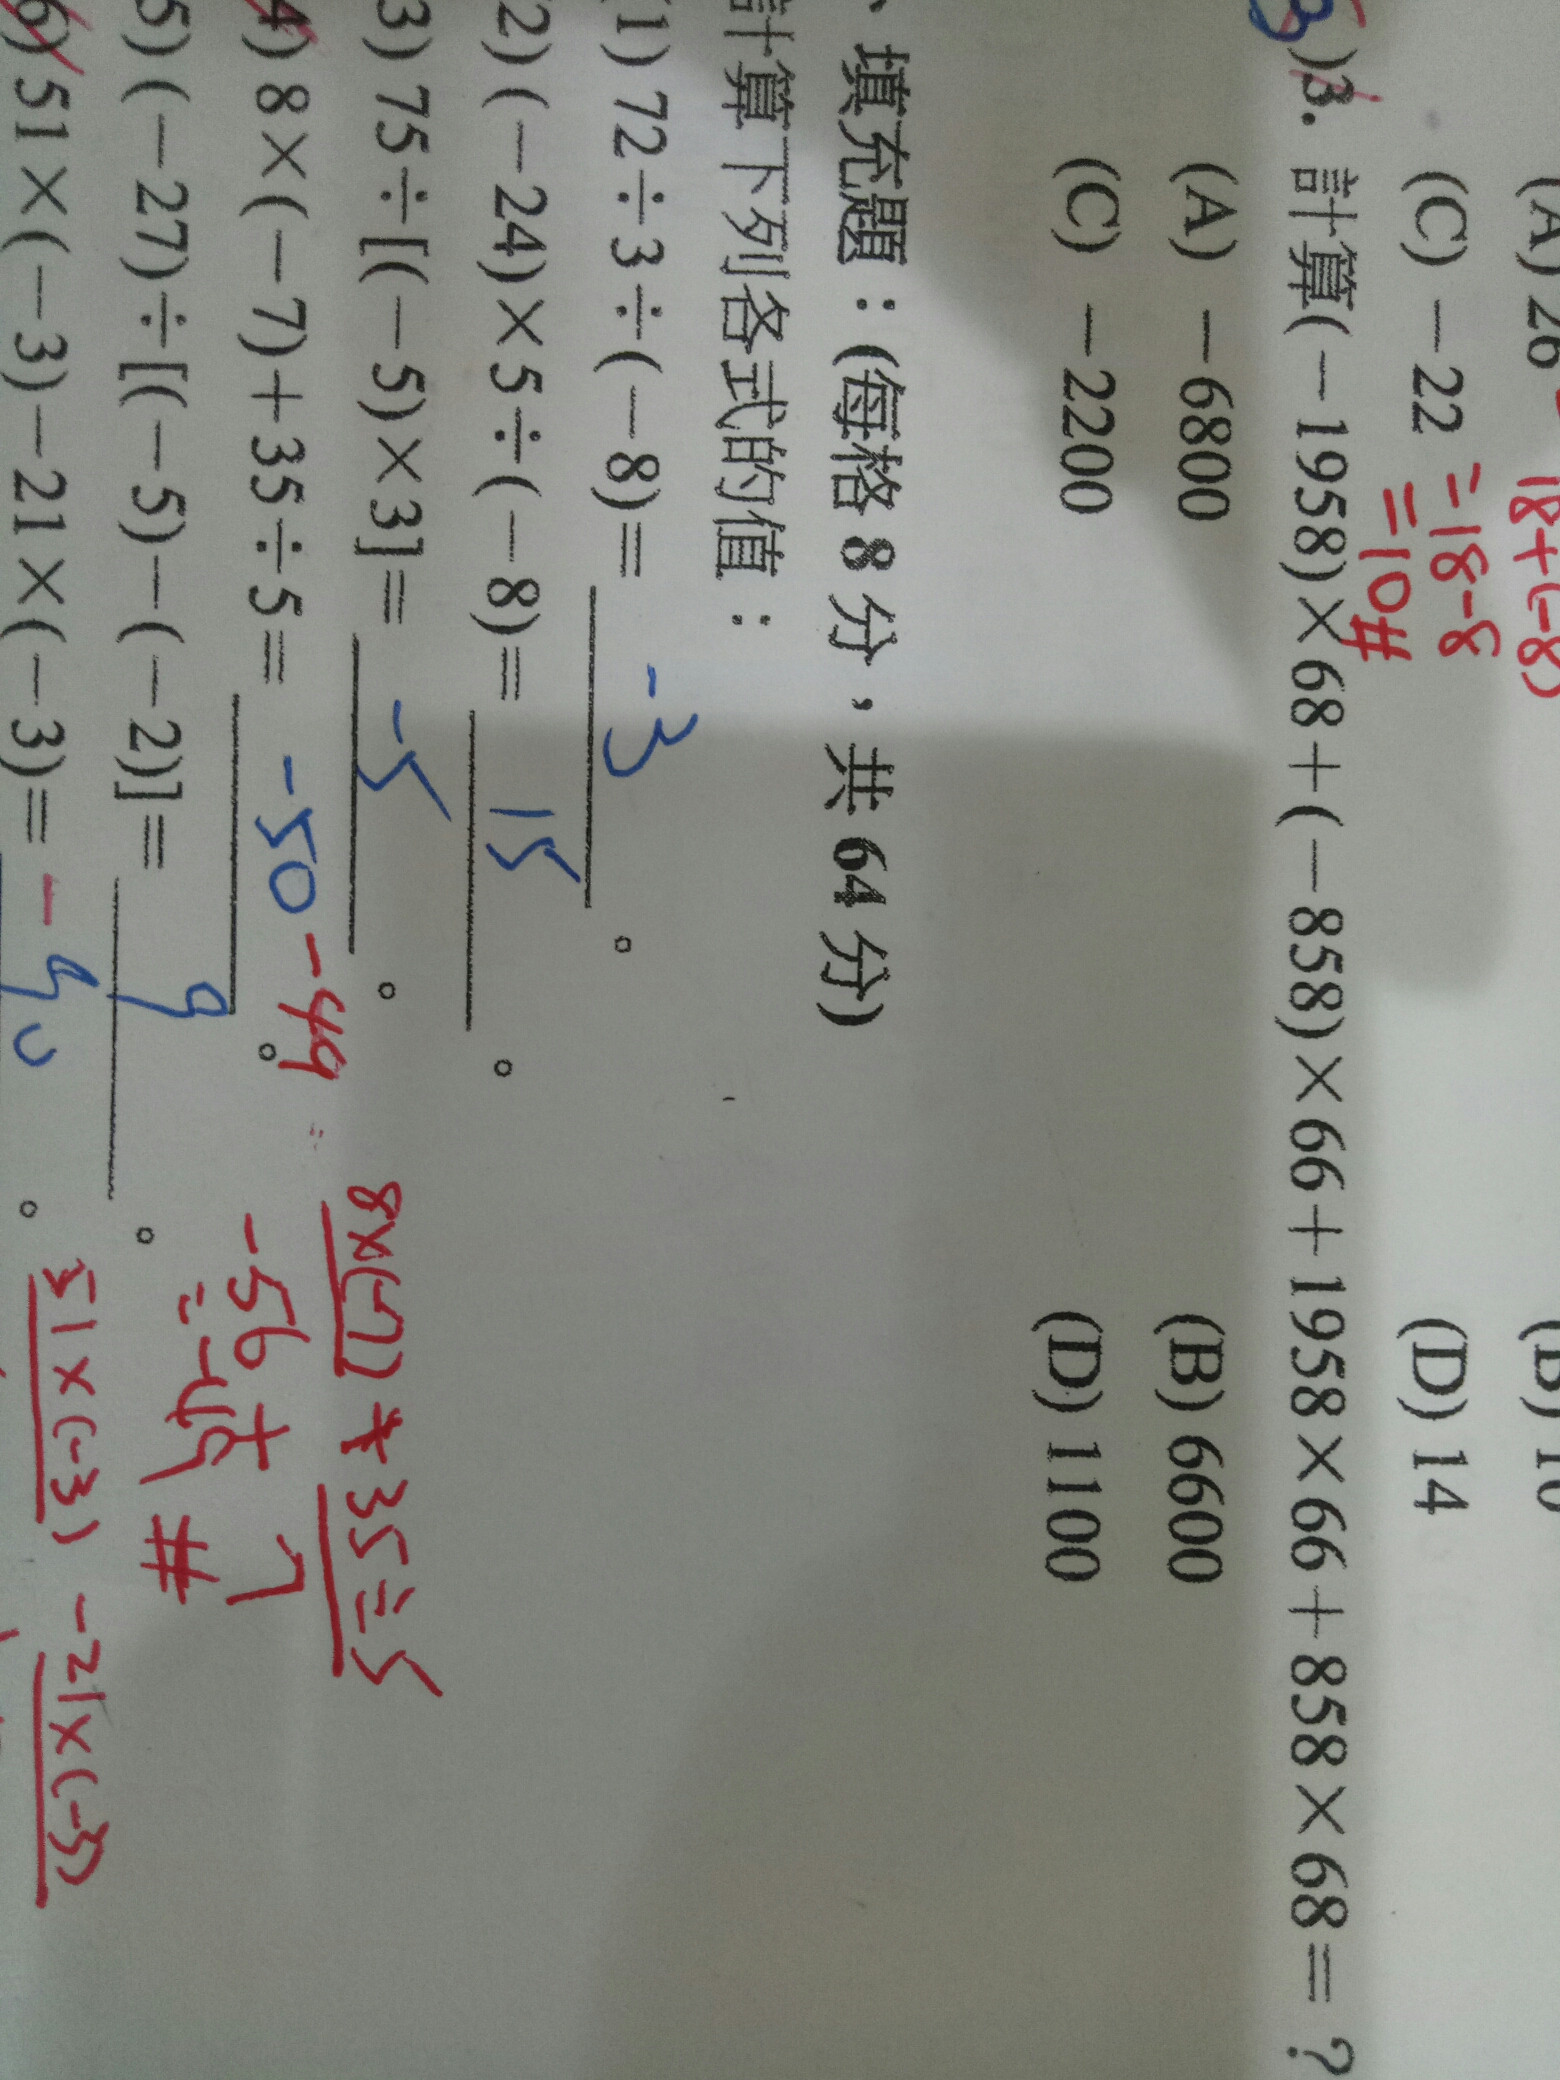 (A) 26
18+(-8)
(C) −22
(D) 14
=18-8
=10#
)3. 計算(−1958)×68+(−858)×66+1958×66+858×68=?
(A) −6800
(B) 6600
(C) −2200
(D) 1100
、填充題:(每格 8 分,共 64 分)
計算下列各式的值:
(1) 72÷3÷(−8)= -3 。
(2) (−24)×5÷(−8)= 15 。
3) 75÷[(−5)×3]= -5 。
4) 8×(−7)+35÷5= -50 -49 。
8×(-7)+35÷5
-56+7
=-49#
5) (−27)÷[(−5)−(−2)]= 9 。
6) 51×(−3)−21×(−3)= -90 。
51×(-3) -21×(-3)